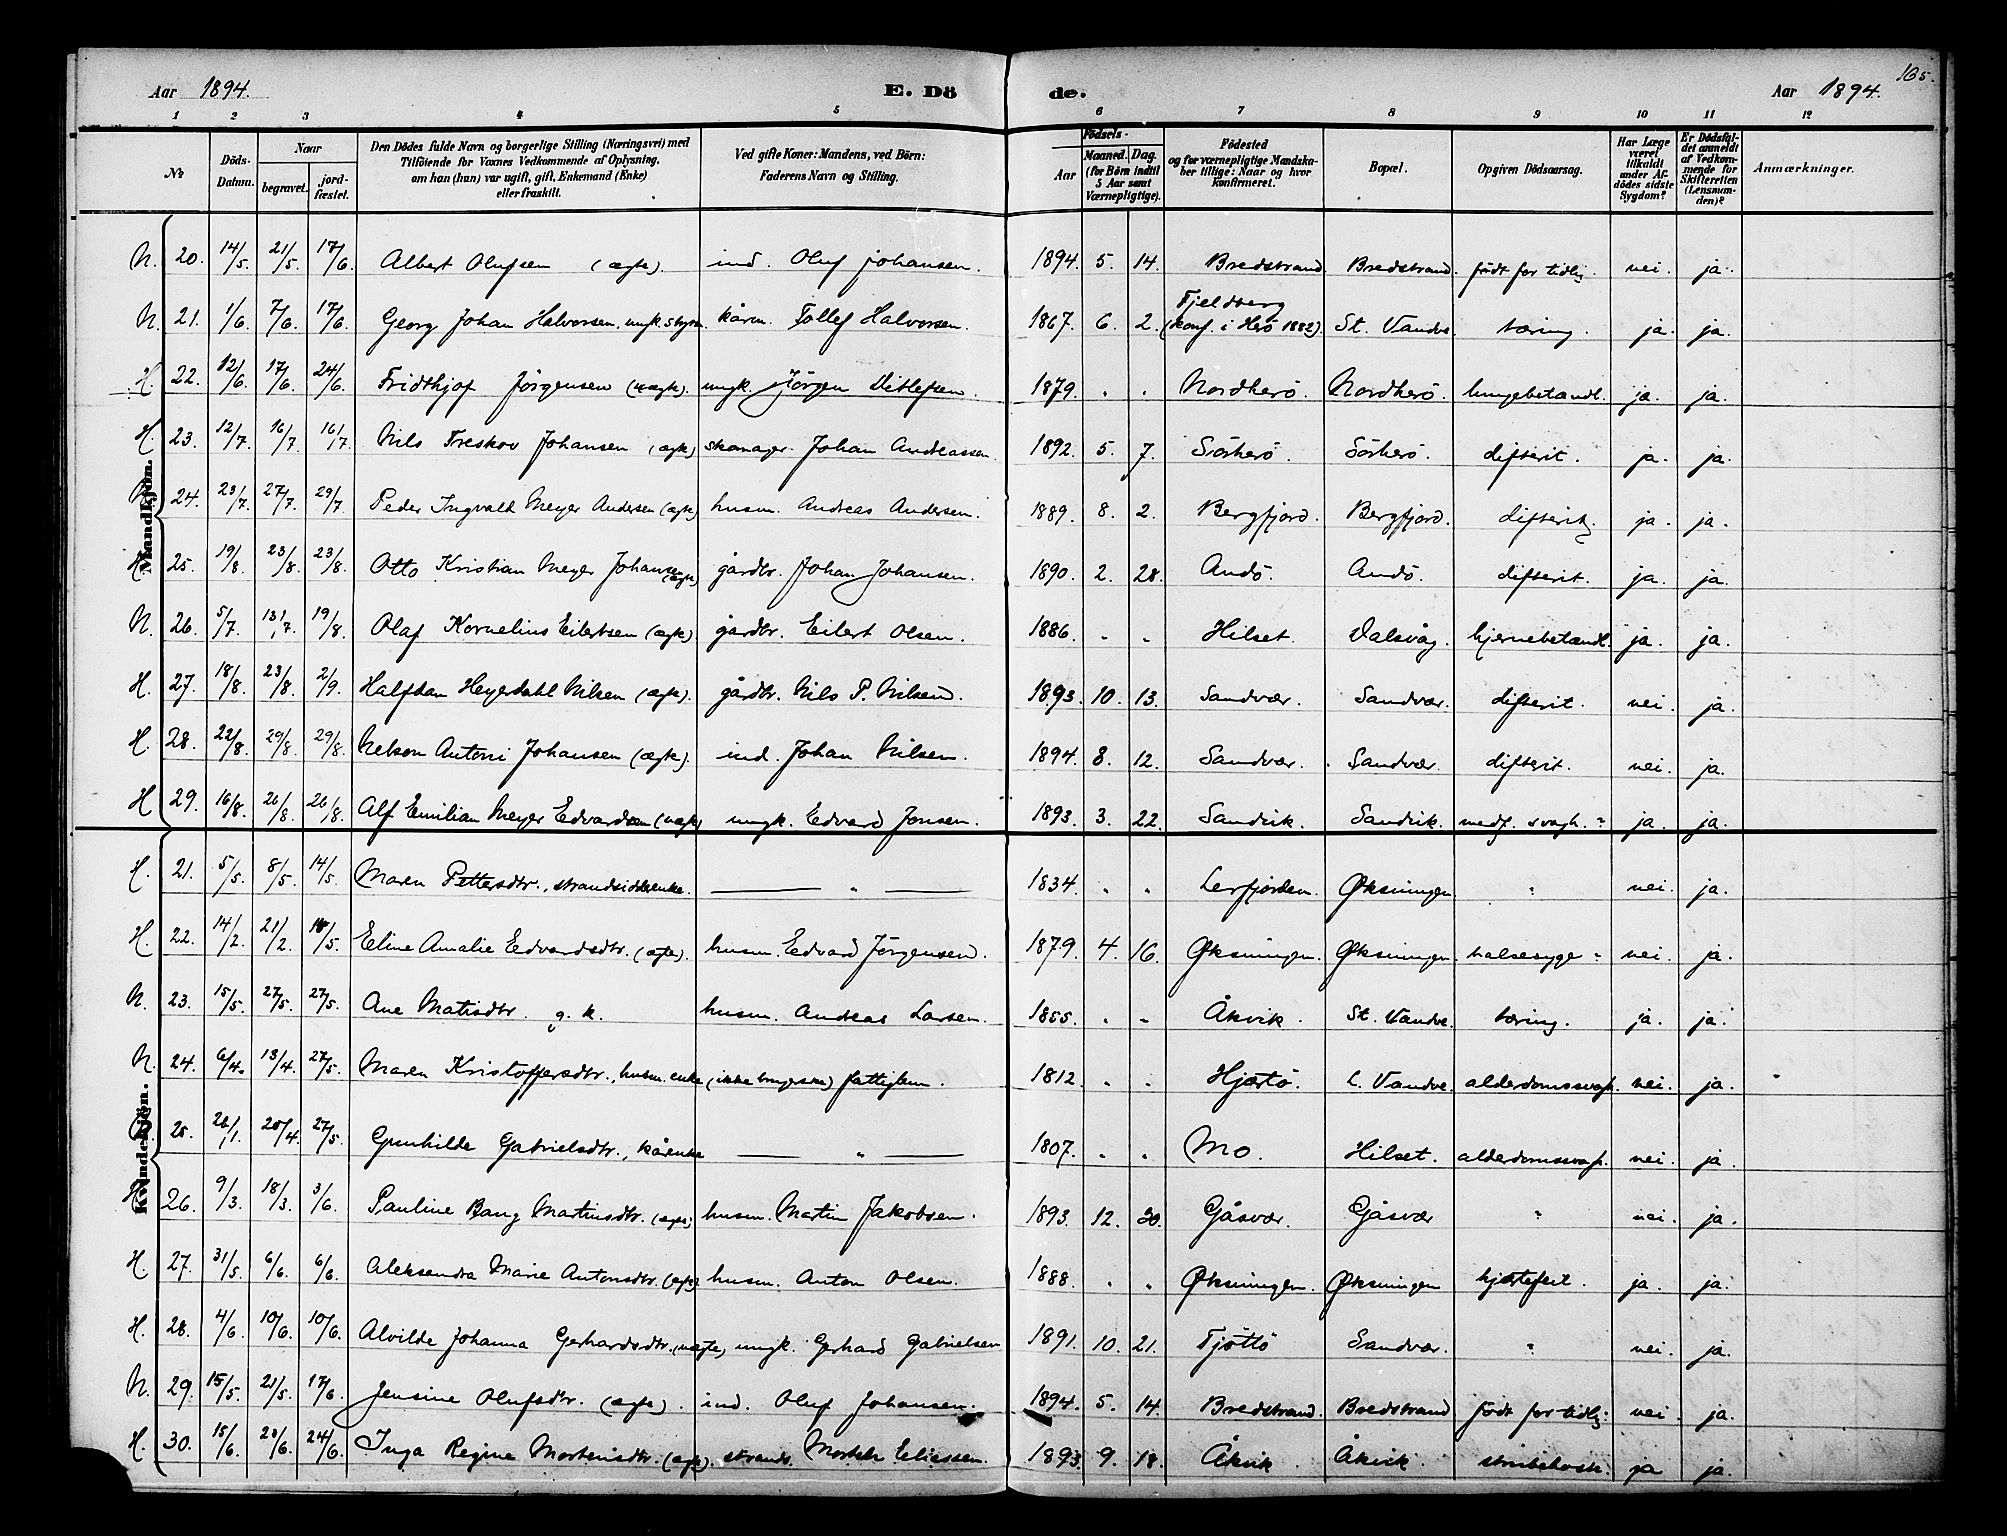 Aar 1894. E. Dö de. Aar 1894. 165.
1 2 3 4 5 6 7 8 9 10 11 12
No
Döds-Datum.
Naar
begravet.
jord-fæstet.
Den Dödes fulde Navn og borgerlige Stilling (Næringsvei) med
Tilföiende for Voxnes Vedkommende af Oplysning,
om han (hun) var ugift, gift, Enkemand (Enke)
eller fraskilt.
Ved gifte Koner: Mandens, ved Börn:
Faderens Navn og Stilling.
Födsels-
Aar
Maaned. Dag.
(for Börn indtil
5 Aar samt
Værnepligtige).
Födested
og for værnepligtige Mandska-
ber tillige: Naar og hvor
konfirmeret.
Bopæl.
Opgiven Dödsaarsag.
Har Læge
været
tilkaldt
under Af-
dödes sidste
Sygdom?
Er Dödsfal-
det anmeldt
af Vedkom-
mende for
Skifteretten
(Lensman-
den)?
Anmærkninger.
Mandkjön.
N. 20. 14/5. 21/5. 17/6. Albert Olufsen (ægte). ind. Oluf Johansen. 1894. 5. 14. Bredstrand Bredstrand. födt for tidlig. nei. ja.
N. 21. 1/6. 7/6. 17/6. Georg Johan Halvorsen, ungk. kårm. Tollef Halvorsen. 1867. 6. 2. Fjeldberg (konf. i Herö 1882). St. Vandve. tæring. ja. ja.
H. 22. 12/6. 17/6. 24/6. Fridthjof Jörgensen (uægte). ungk. Jörgen Ditlefsen. 1879. " " Nordherö. Nordherö. lungebetændl. ja. ja.
H. 23. 12/7. 16/7. 16/7. Nils Treskov Johansen (ægte) skomager. Johan Andreassen. 1892. 5. 7. Sörherö. Sörherö. difterit. ja. ja.
N. 24. 23/7. 27/7. 29/7. Peder Ingvald Meyer Andersen (ægte) husm. Andreas Andersen. 1889. 8. 2. Bergfjord. Bergfjord. difterit. ja. ja.
H. 25. 19/8. 23/8. 23/8. Otto Kristian Meyer Johansen (ægte) gårdbr. Johan Johansen. 1890. 2. 28. Andö. Andö. difterit. ja. ja.
N. 26. 5/7. 13/7. 19/8. Olaf Kornelius Eilertsen (ægte) gårdbr. Eilert Olsen. 1886. " " Hilset. Valsvåg. hjernebetændl. ja. ja.
H. 27. 18/8. 23/8. 2/9. Halfdan Heyerdahl Nilsen (ægte). gårdbr. Nils P. Nilsen. 1893. 10. 13. Sandvær. Sandvær. difterit. nei. ja.
H. 28. 22/8. 29/8. 29/8. Nelson Antoni Johansen (ægte). ind. Johan Nilsen. 1894. 8. 12. Sandvær. Sandvær. difterit. nei. ja.
H 29. 16/8. 26/8. 26/8. Alf Emilian Meyer Edvardsen (uægte) ungk. Edvard Jensen. 1893. 3. 22. Sandvik. Sandvik. medf. svagh. ja. ja.
Kvindekjön.
H. 21. 5/5. 8/5. 14/5. Maren Pettersdtr., strandsidderenke. — " — 1834. " " Lerfjorden. Øksningen " nei. ja.
H. 22. 14/2. 21/2. 14/5. Eline Amalie Edvardsdtr. (ægte). husm. Edvard Jörgensen. 1879. 4. 16. Øksningen. Øksningen. halsesyge nei. ja.
N. 23. 15/5. 27/5. 27/5. Ane Matisdtr. g. k. husm. Andreas Larsen. 1855. " " Åkvik. St. Vandve. tæring. ja. ja.
N. 24. 6/4. 13/4. 27/5. Maren Kristoffersdtr., husm. enke (ikke brugerske) fattiglem. 1812. " " Hjartö. L. Vandve. alderdomssvagh. nei. ja.
25. 26/1. 20/4. 27/5. Gunhilde Gabrielsdtr., kårenke — " — 1807. " " Mo. Hilset. alderdomssvagh. nei. ja.
H. 26. 9/3. 18/3. 3/6. Pauline Bang Martinsdtr. (ægte) husm. Martin Jakobsen. 1893. 12. 30. Gåsvær. Gåsvær " nei. ja.
H. 27. 31/5. 6/6. 6/6. Aleksandra Marie Antonsdtr. (ægte) husm. Anton Olsen. 1888. " " Øksningen. Øksningen hjertefeil. ja. ja.
H. 28. 4/6. 10/6. 10/6. Alvilde Johanna Gerhardsdtr. (uægte) ungk. Gerhard Gabrielsen 1891. 10. 21. Tjöttö Sandvær. " nei. ja.
N. 29. 15/5. 21/5. 17/6. Jensine Olufsdtr. (ægte). ind. Oluf Johansen. 1894. 5. 14. Bredstrand. Bredstrand födt for tidlig. nei. ja.
H. 30. 15/6. 23/6. 24/6. Inga Regine Mortensdtr. (ægte). strands. Morten Eliessen. 1893. 9. 18. Åkvik. Åkvik. strubehoste. ja ja.